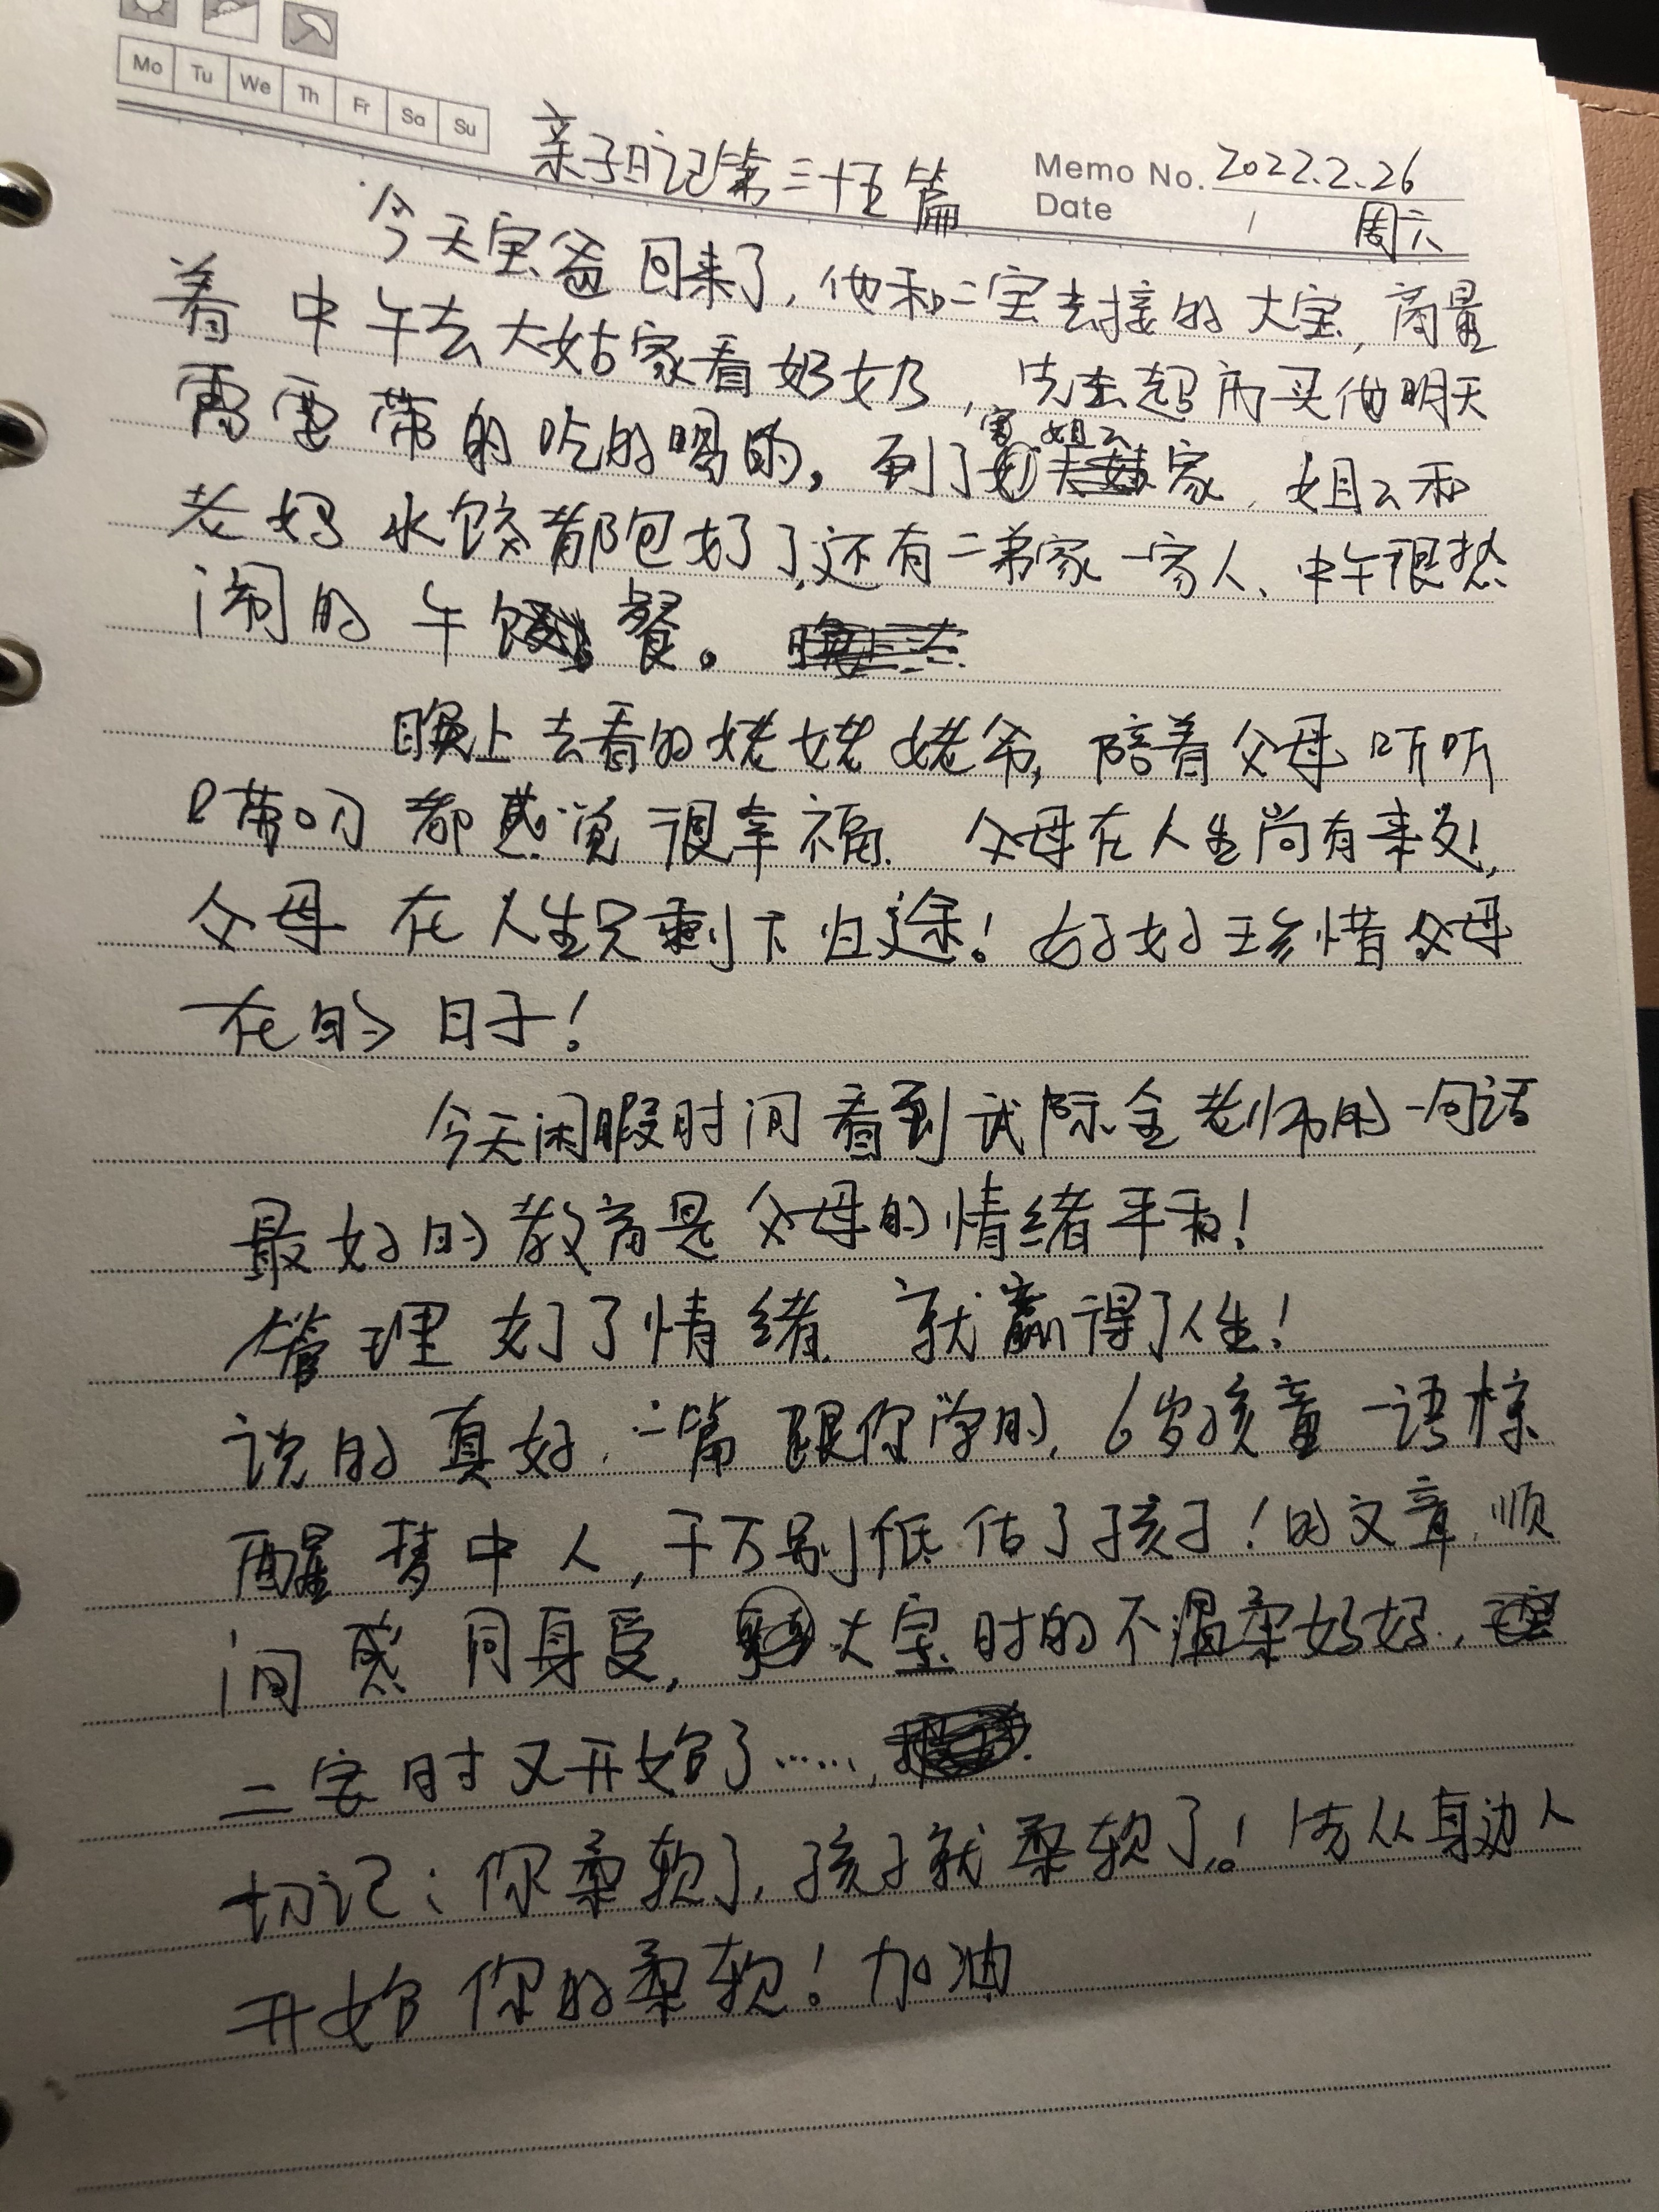 Mo Tu We Th Fr Sa Su
亲子日记第三十五篇
Memo No. 2022.2.26
Date / 周六
今天宝爸回来了,他和二宝去接的大宝,商量
着中午去大姑家看奶奶,先去超市买他明天
需要带的吃的喝的,到了 姐姐家,姐姐和
老妈水饺都包好了,还有二弟家一家人、中午很热
闹的午餐。
晚上去看的姥姥姥爷,陪着父母听听
唠叨都感觉很幸福.父母在人生尚有来处,
父母在人生只剩下归途!好好珍惜父母
在的日子!
今天闲暇时间看到武际金老师的一句话
最好的教育是父母的情绪平和!
管理好了情绪.就赢得了人生!
说的真好.二篇跟你学的,6岁孩童一语惊
醒梦中人,千万别低估了孩子!的文章,顺
间感同身受, 大宝时的不温柔妈妈,
二宝时又开始了……,
切记:你柔软了,孩子就柔软了!请从身边人
开始你的柔软!加油